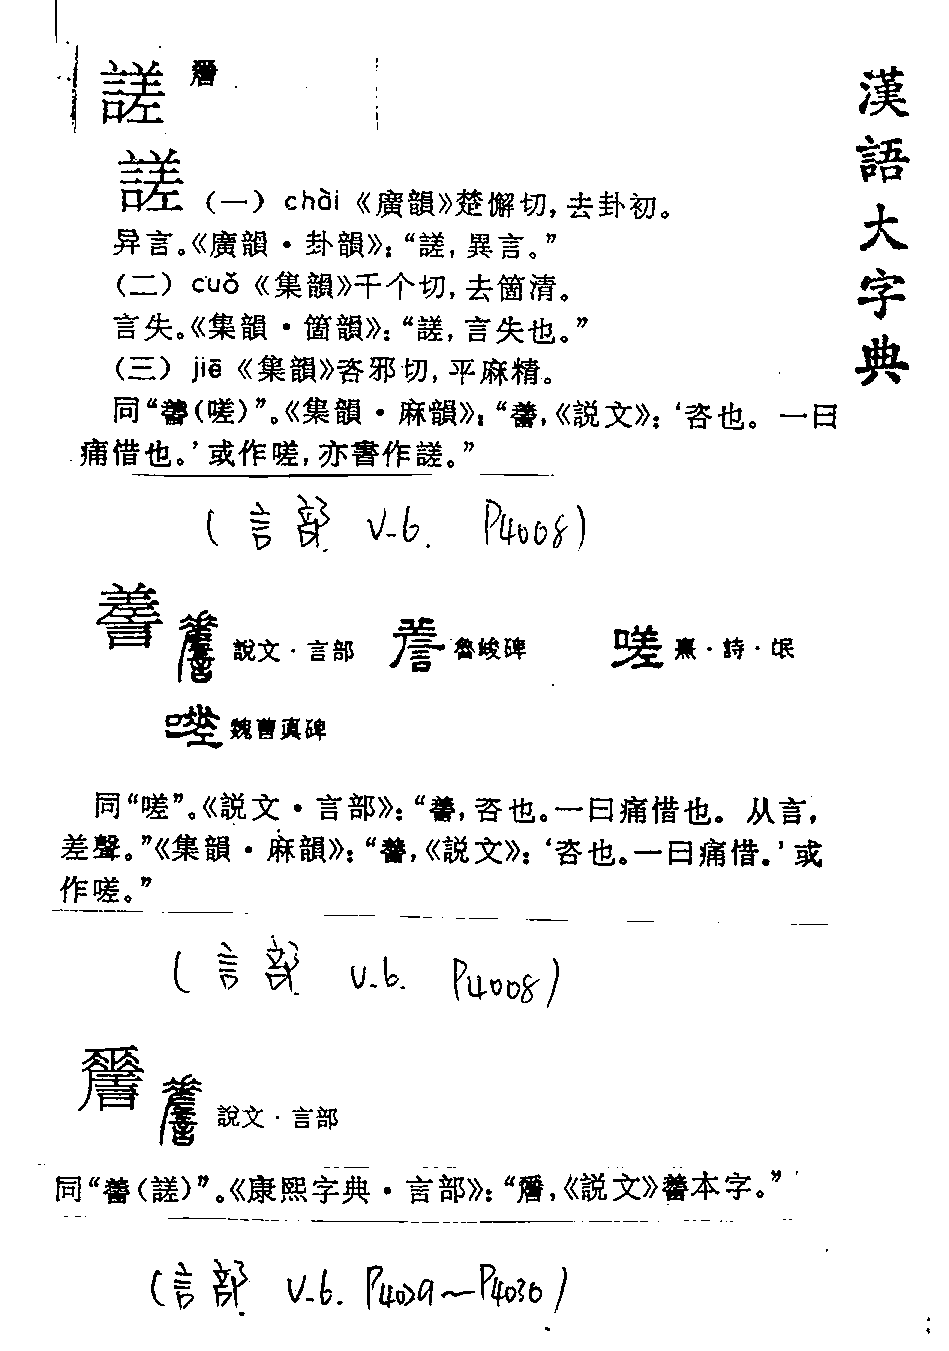 漢語大字典
謯
謯(一) chài《廣韻》楚懈切,去卦初。
异言。《廣韻·卦韻》:“謯,異言。”
(二) cuǒ《集韻》千个切,去箇清。
言失。《集韻·箇韻》:“謯,言失也。”
(三) jiē《集韻》咨邪切,平麻精。
同“𧪘(嗟)”。《集韻·麻韻》:“𧪘,《説文》:‘咨也。一曰
痛惜也。’或作嗟,亦書作謯。”
(言部 V.6. P4008)
説文·言部 魯峻碑 嗟 熹·詩·氓
嗟 魏曹真碑
同“嗟”。《説文·言部》:“𧪘,咨也。一曰痛惜也。从言,
差聲。”《集韻·麻韻》:“𧪘,《説文》:‘咨也。一曰痛惜。’或
作嗟。”
(言部 V.6. P4008)
説文·言部
同“𧪘(謯)”。《康熙字典·言部》:“,《説文》𧪘本字。”
(言部 V.6. P4029~P4030)